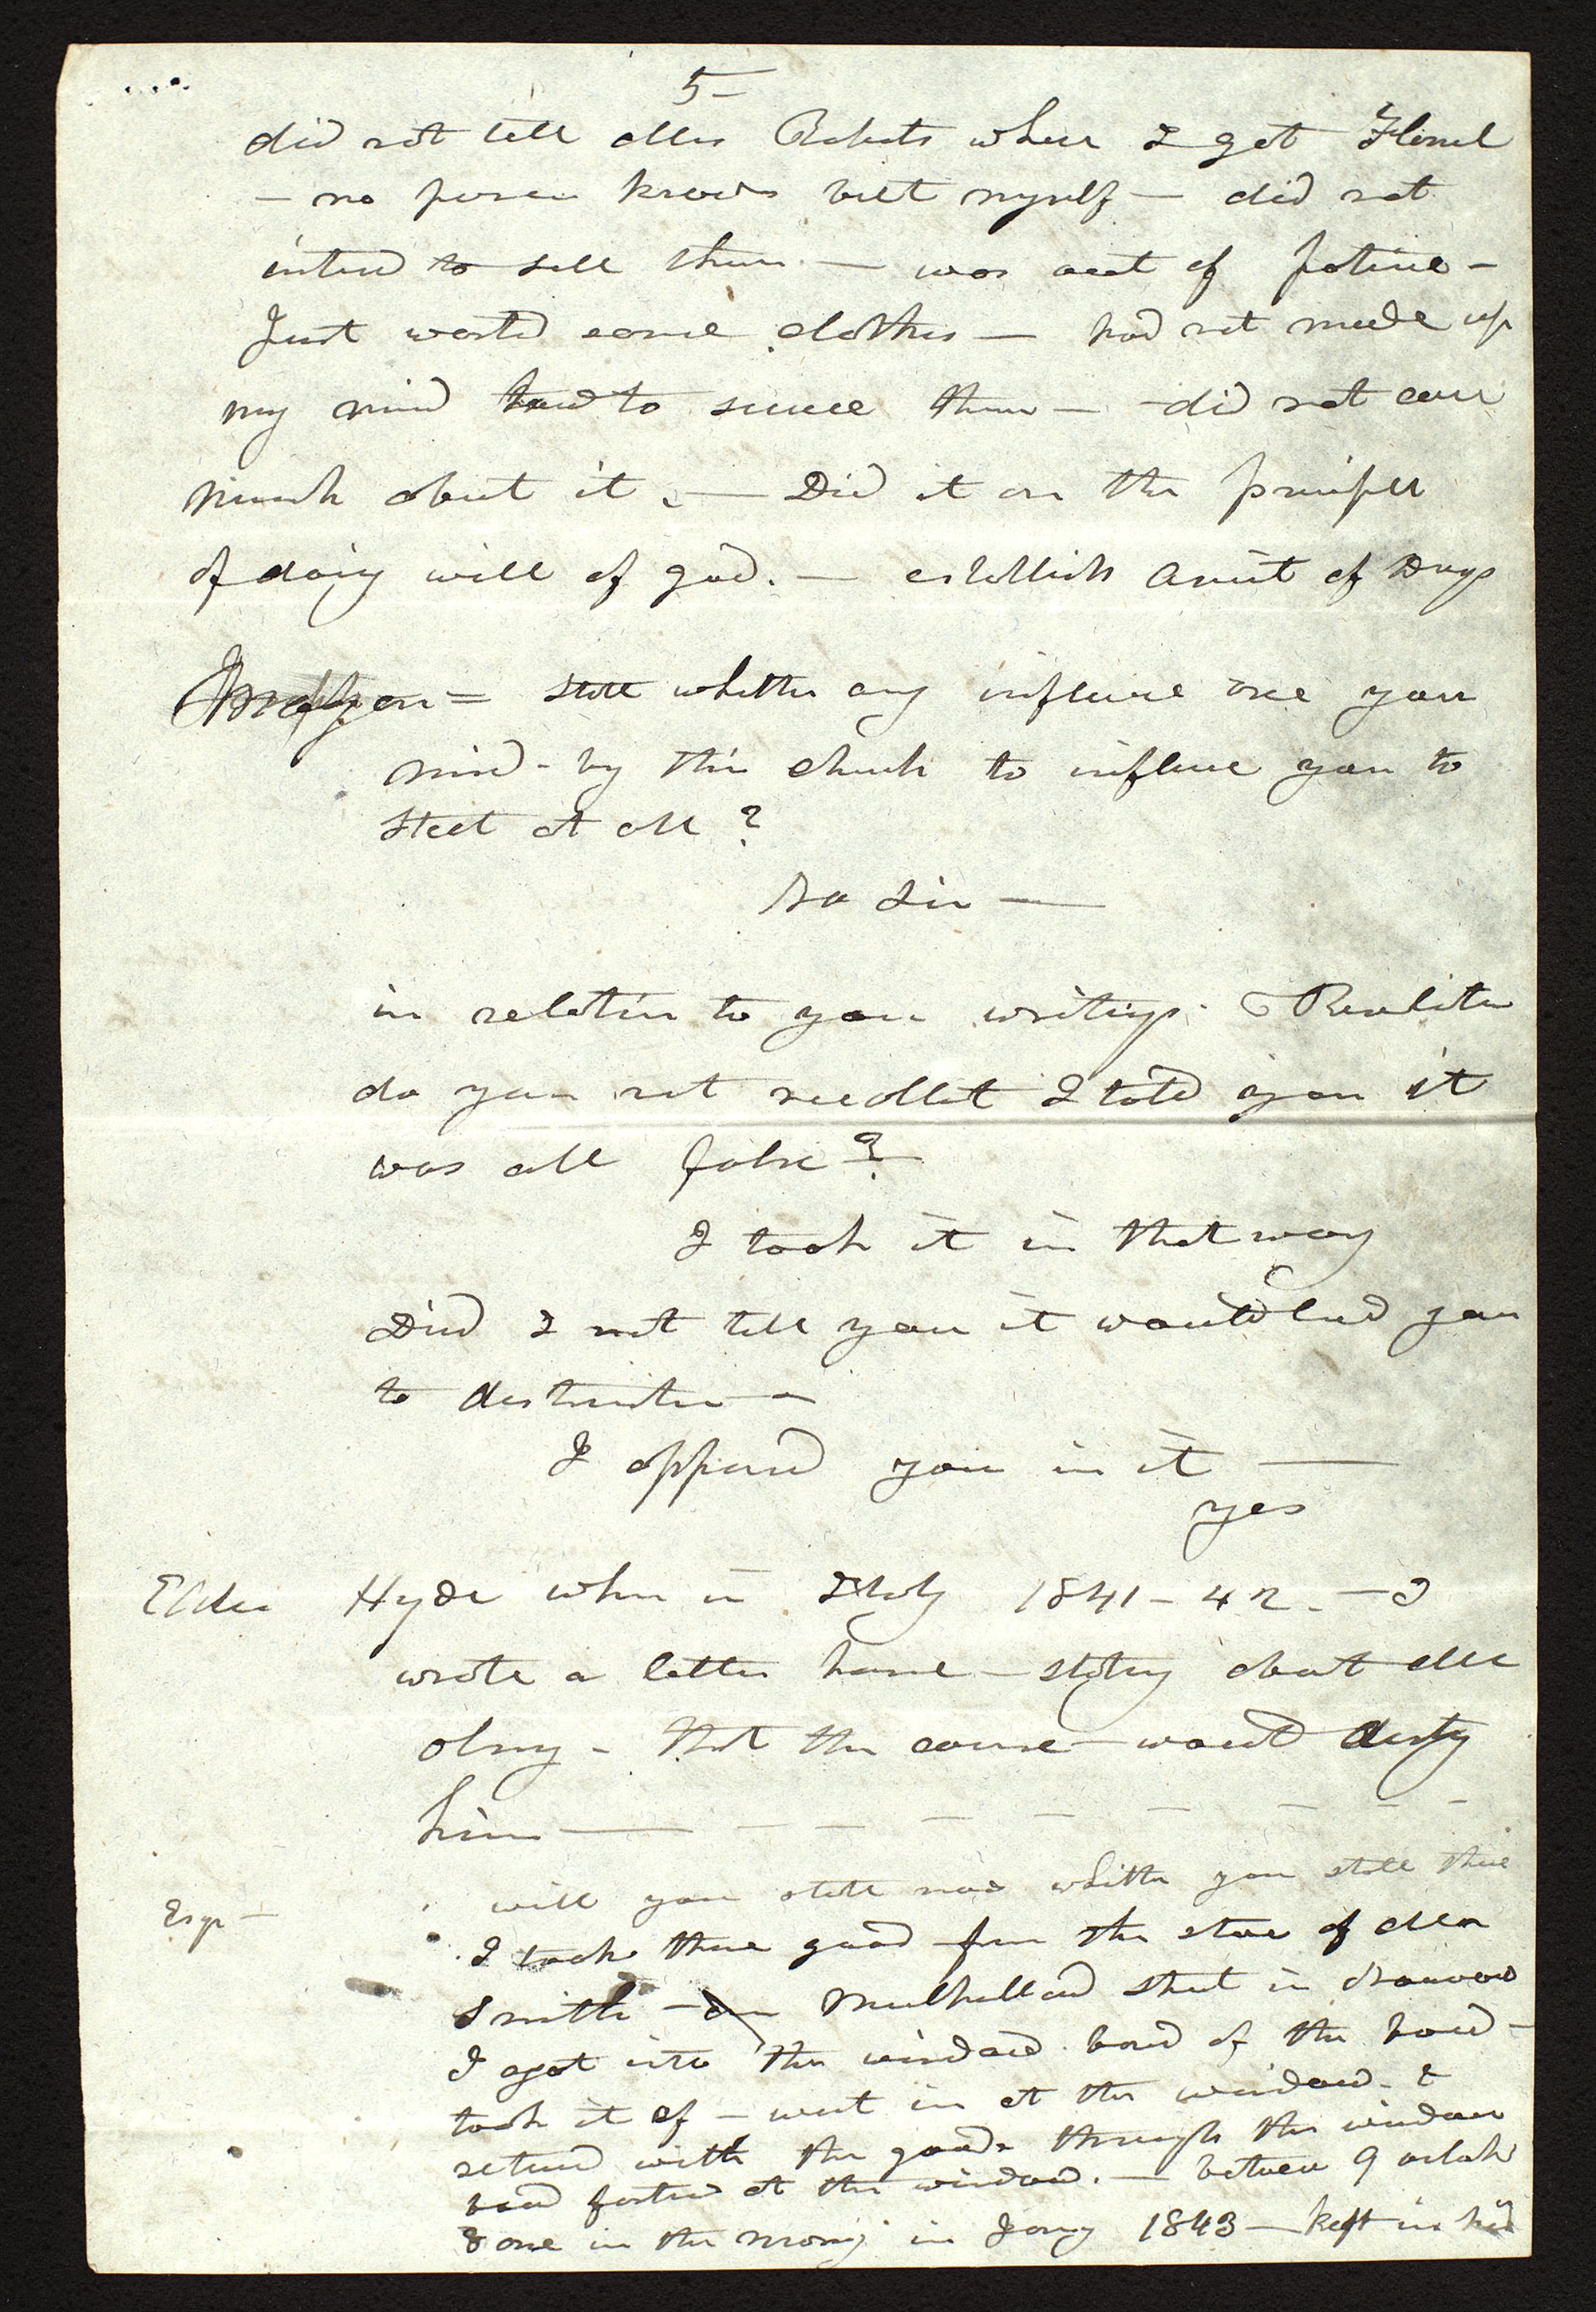 5-
did not tell Olney Roberts where I got Flanel
- no person knows but myself - did not
intend to sell them - was out of fatine -
Just wanted some clothes - had not made up
my mind how to secure them - did not care
much about it. - Did it on the principle
of doing will of god. - establish amut of Days
= state whether any influence over you
mind - by this church to influence you to
steel at all ?
No Sir -
in relation to your writings. & Revelation
do you not recollect I told you it
was all false ?
I took it in that way
Did I not tell you it would lead you
to destruction -
I opposed you in it -
yes
Elder Hyde when in Italy 1841 - 42. - I
wrote a letter home - stating about Mr
Olney - that the course would destroy
him - - - - - - - -
Esqr - will you state now whether you stole these
I took these goods from the store of Mr
Smith - on Mulholland Street in Nauvoo
I got into the window. board of the board -
took it off - went in at the window. &
returned with the goods through the window
board fastened at the window. - between 9 oclock
& one in the morning in Jany 1843 - kept in hid